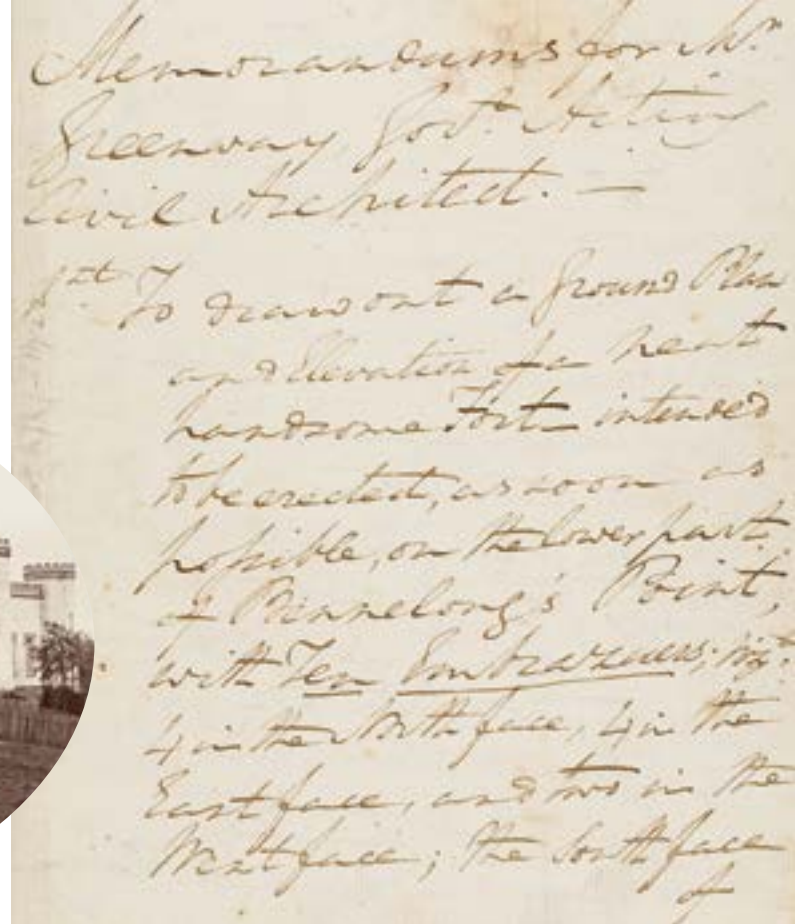 Memorandums for Mr.
Greenway Govt. Acting
Civil Architect. —
1st. To draw out a Ground Plan
and Elevation of a neat
handsome Fort intended
to be erected, as soon as
possible, on the lower part
of Bennelong's Point,
with Ten Embrazures; vizt.
4 in the North face, 4 in the
East face, and two in the
West face; the South face